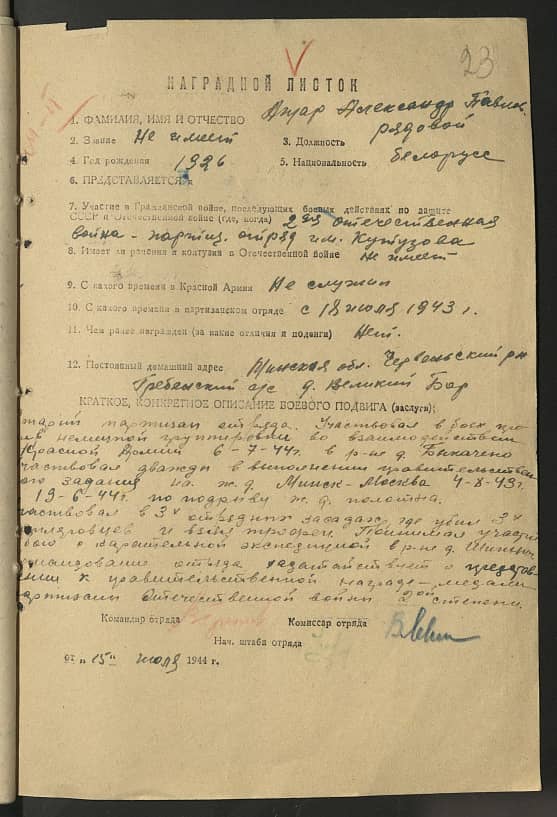 23
НАГРАДНОЙ ЛИСТОК
1. ФАМИЛИЯ, ИМЯ И ОТЧЕСТВО Ажар Александр Павл.
2. Звание Не имеет 3. Должность рядовой
4. Год рождения 1926 5. Национальность белорусс
6. ПРЕДСТАВЛЯЕТСЯ к
7. Участие в Гражданской войне, последующих боевых действиях по защите
СССР и Отечественной войне (где, когда) 2ая отечественная
война - партиз. отряд им. Кутузова
8. Имеет ли ранения и контузии в Отечественной войне Не имеет
9. С какого времени в Красной Армии Не служил
10. С какого времени в партизанском отряде с 18 июля 1943 г.
11. Чем ранее награжден (за какие отличия и подвиги) Нет.
12. Постоянный домашний адрес Минская обл. Червеньский р-н
Гребенский с/с д. Великий Бор
КРАТКОЕ, КОНКРЕТНОЕ ОПИСАНИЕ БОЕВОГО ПОДВИГА (заслуги):
партизан отряда. Участвовал в боях про
немецкой группировки во взаимодействии
Красной Армии 6-7-44г. в р-не д.
частвовал дважды в выполнении правительствен
ого задания на ж.д. Минск-Москва 4-8-43г.
19-6-44г. по подрыву ж.д. полотна.
аствовал в 3х отрядных засадах где убил 3х
и взял трофеи. Принимал участ
бою с карательной экспедицией в р-не д.
омандование отряда ходатайствует о представ
ении к правительственной награде - медали
артизану Отечественной войны 2ой степени.
Командир отряда Комиссар отряда
Нач. штаба отряда
от „15" июля 1944 г.